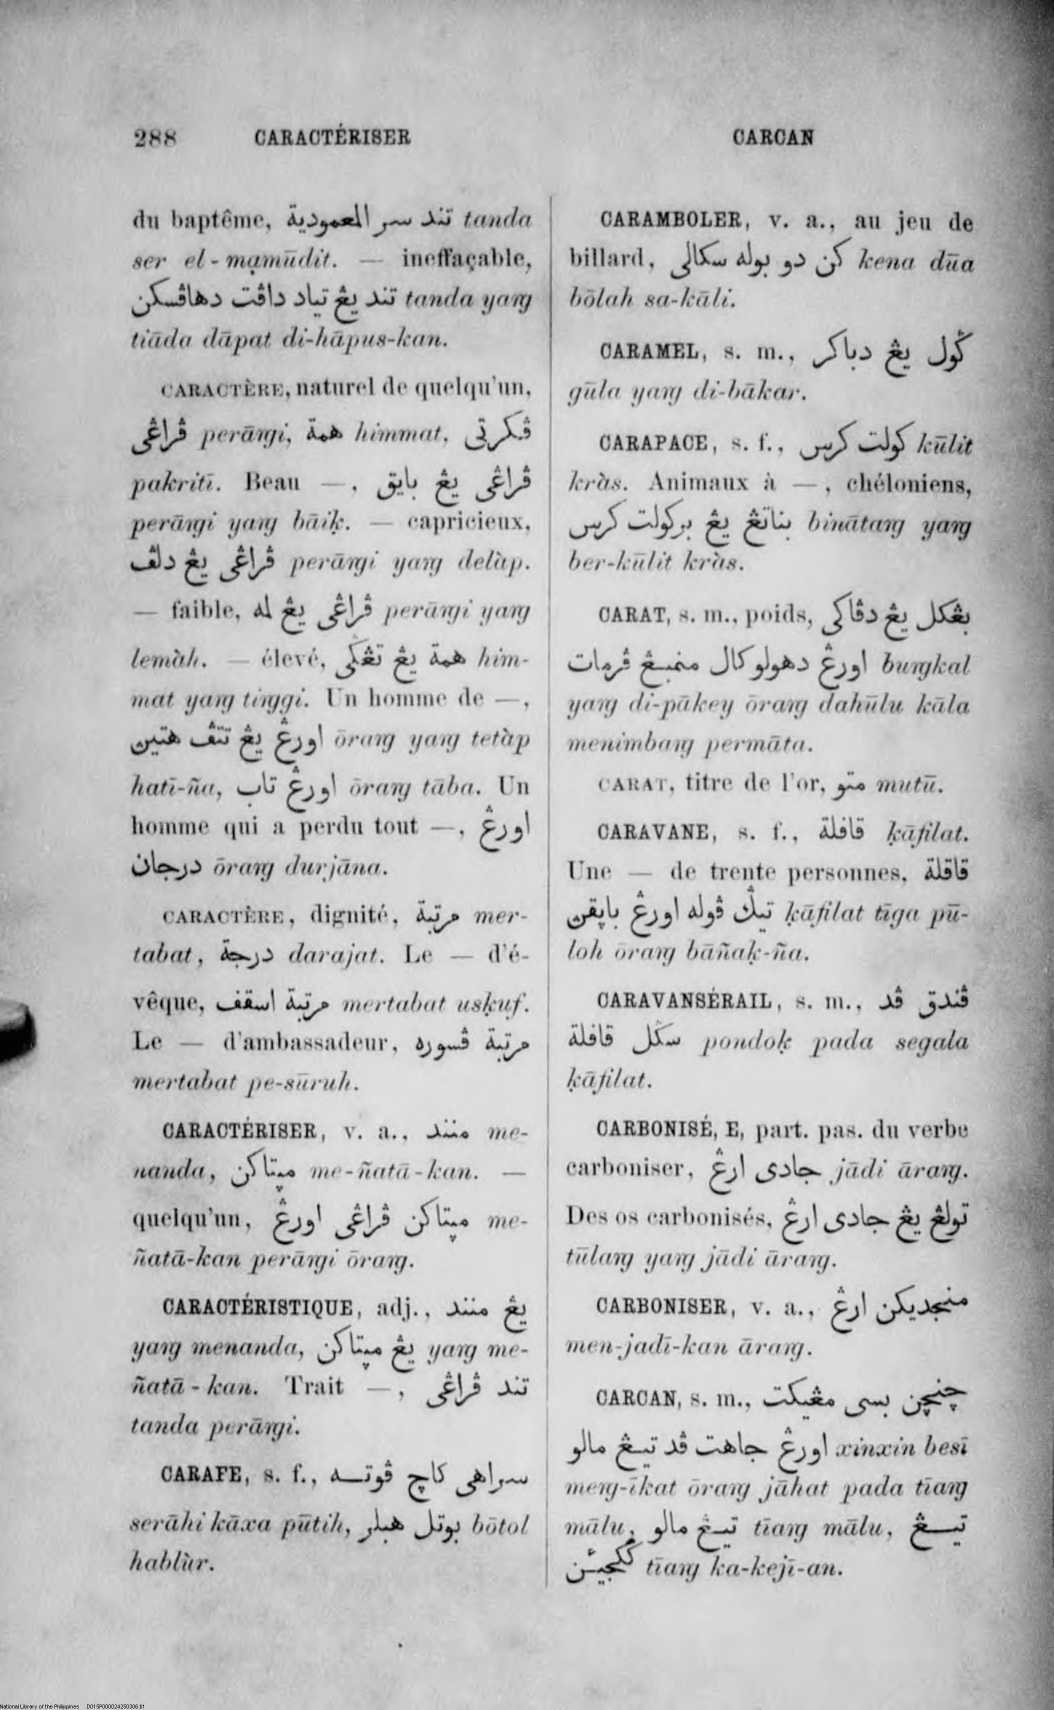 288 CARACTÉRISER CARCAN
du baptême, تند سر المعمودية tanda
ser el-mạmūdit. — ineffaçable,
تند يڠ تياد داڤت دهاڤسكن tanda yaŋ
tiāda dāpat di-hāpus-kan.
CARACTÈRE, naturel de quelqu'un,
ڤراڠي perāŋi, همة himmat, ڤكرتي
pakritī. Beau —, ڤراڠي يڠ بايق
perāŋi yaŋ bāiḳ. — capricieux,
ڤراڠي يڠ دلڤ perāŋi yaŋ delàp.
— faible, ڤراڠي يڠ له perāŋi yaŋ
lemàh. — élevé, همة يڠ تڠݢي him-
mat yaŋ tiŋgi. Un homme de —,
اورڠ يڠ تتڤ هتين ōraŋ yaŋ tetàp
hatī-ña, اورڠ تاب ōraŋ tāba. Un
homme qui a perdu tout —, اورڠ
درجان ōraŋ durjāna.
CARACTÈRE, dignité, مرتبة mer-
tabat, درجة darajat. Le — d'é-
vêque, مرتبة اسقف mertabat usḳuf.
Le — d'ambassadeur, مرتبة ڤسوره
mertabat pe-sūruh.
CARACTÉRISER, v. a., منند me-
nanda, ميتاكن me-ñatā-kan. —
quelqu'un, ميتاكن ڤراڠي اورڠ me-
ñatā-kan perāŋi ōraŋ.
CARACTÉRISTIQUE, adj., يڠ منند
yaŋ menanda, يڠ ميتاكن yaŋ me-
ñatā-kan. Trait —, تند ڤراڠي
tanda perāŋi.
CARAFE, s. f., سراهي كاچ ڤوته
serāhi kāxa pūtih, بوتل هبلر bōtol
hablùr.
CARAMBOLER, v. a., au jeu de
billard, كن دو بوله سكالي kena dūa
bōlah sa-kāli.
CARAMEL, s. m., ݢول يڠ دباكر
gūla yaŋ di-bākar.
CARAPACE, s. f., كولت كرس kūlit
kràs. Animaux à —, chéloniens,
بناتڠ يڠ بركولت كرس binātaŋ yaŋ
ber-kūlit kràs.
CARAT, s. m., poids, بڠكل يڠ دڤاكي
اورڠ دهولو كال منمبڠ ڤرمات buŋkal
yaŋ di-pākey ōraŋ dahūlu kāla
menimbaŋ permāta.
CARAT, titre de l'or, متو mutū.
CARAVANE, s. f., قافلة ḳāfilat.
Une — de trente personnes, قافلة
تيݢ ڤوله اورڠ باڽقن ḳāfilat tīga pū-
loh ōraŋ bāñaḳ-ña.
CARAVANSÉRAIL, s. m., ڤندق ڤد
سݢل قافلة pondoḳ pada segala
ḳāfilat.
CARBONISÉ, E, part. pas. du verbe
carboniser, جادي ارڠ jādi āraŋ.
Des os carbonisés, تولڠ يڠ جادي ارڠ
tūlaŋ yaŋ jādi āraŋ.
CARBONISER, v. a., منجديكن ارڠ
men-jadī-kan āraŋ.
CARCAN, s. m., چنچن بسي مڠيكت
اورڠ جاهت ڤد تيڠ مالو xinxin besī
meŋ-īkat ōraŋ jāhat pada tīaŋ
mālu, تيڠ مالو tīaŋ mālu, تيڠ
ككجيئن tīaŋ ka-kejī-an.
National Library of the Philippines